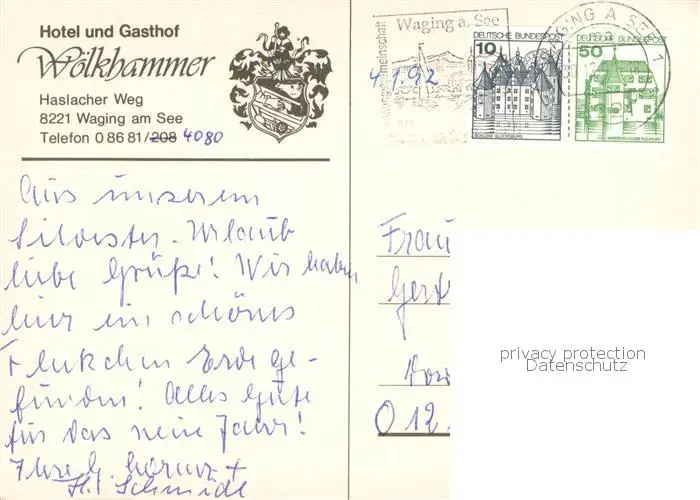 Hotel und Gasthof
Wölkhammer
Haslacher Weg
8221 Waging am See
Telefon 0 86 81/208 4080
Aus unserem
Silvester-Urlaub
liebe Grüße! Wir haben
hier ein schönes
Fleckchen Erde ge-
funden! Alles Gute
für das neue Jahr!
Ihre
Schmidt
Waging a. See
4.1.92
DEUTSCHE BUNDESPOST
10
SCHLOSS GLÜCKSBURG
DEUTSCHE BUNDESPOST
50
WAGING A SEE 1
Frau
Gert
O 12
privacy protection
Datenschutz